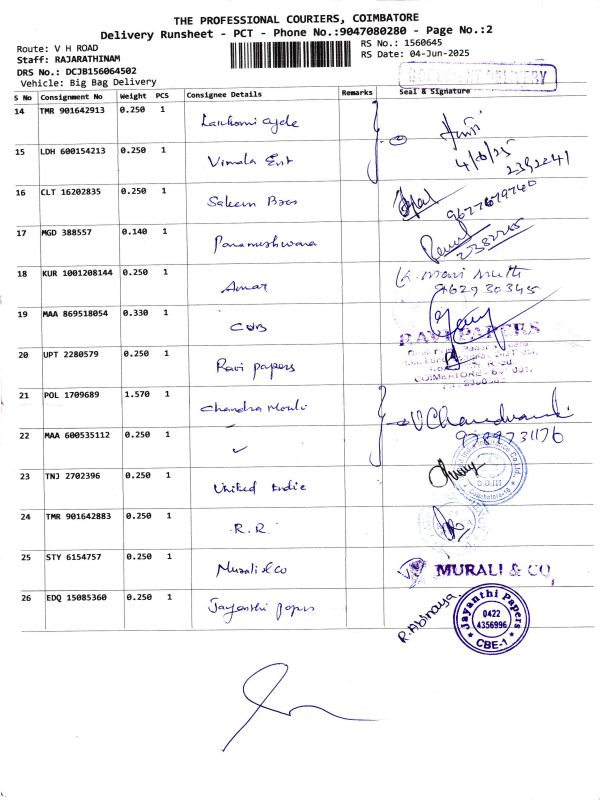 THE PROFESSIONAL COURIERS, COIMBATORE
Delivery Runsheet - PCT - Phone No.:9047080280 - Page No.:2
Route: V H ROAD
RS No.: 1560645
Staff: RAJARATHINAM
RS Date: 04-Jun-2025
DRS No.: DCJB156064502
Vehicle: Big Bag Delivery
DOCUMENT DELIVERY
S No Consignment No Weight PCS Consignee Details Remarks Seal & Signature
14 TMR 901642913 0.250 1 Lakshmi Cycle
15 LDH 600154213 0.250 1 Vimala Ent
4/6/25
2392241
16 CLT 16202835 0.250 1 Saleem Bros
17 MGD 388557 0.140 1 Parameshwara
2382215
18 KUR 1001208144 0.250 1 Amar
K. Mari Muthu
962930345
19 MAA 869518054 0.330 1 CUB
20 UPT 2280579 0.250 1 Ravi papers
RAVI PAPERS
COIMBATORE
21 POL 1709689 1.570 1 Chandra Mouli
V Chandramouli
9789731176
22 MAA 600535112 0.250 1 ✓
23 TNJ 2702396 0.250 1 United Indie
D.O.III
Coimbatore-18
24 TMR 901642883 0.250 1 R.R.
25 STY 6154757 0.250 1 Murali & Co
MURALI & CO,
26 EDQ 15085360 0.250 1 Jayanthi Papers
R. Abinaya
Jayanthi Papers
0422
4356996
CBE-1